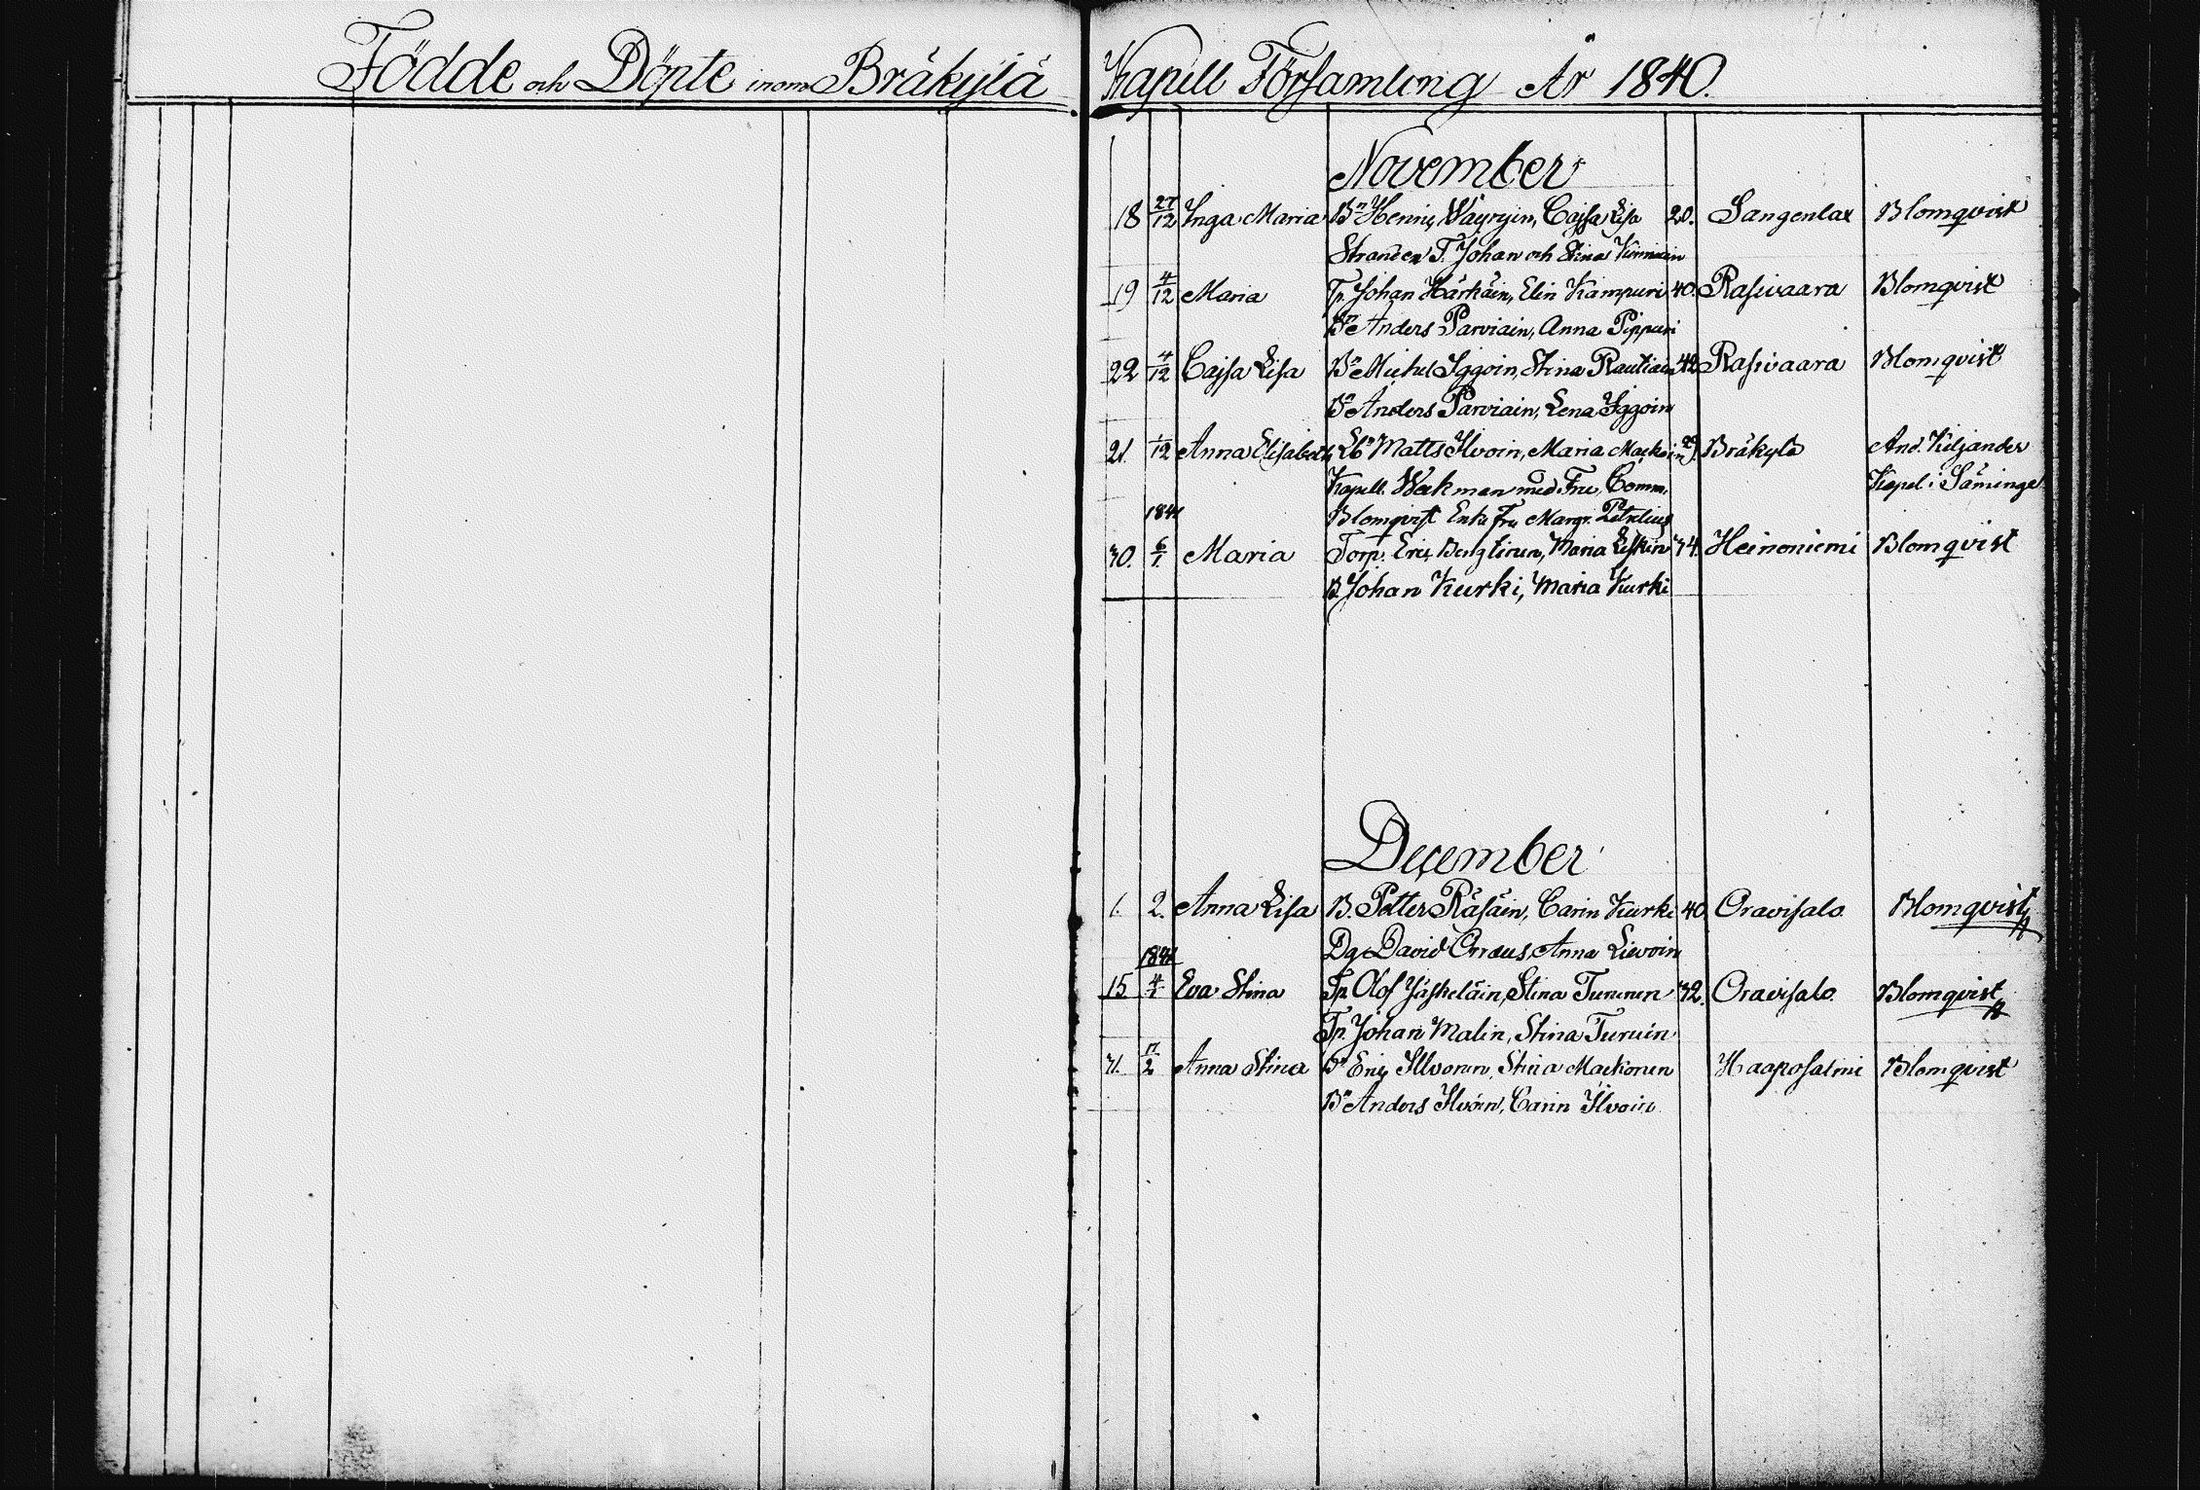 Födde och Döpte inom Bräkylä Kapell Församling År 1840.
November
18 27/12 Inga Maria Bn Henric Wäyryin, Cajsa Lisa 20. Sangenlax Blomqvist
Stranden T. Johan och Stina
19 4/12 Maria Tp. Johan Härkäin, Elin Kampuri 40. Rasivaara Blomqvist
Bn Anders Parviain, Anna Pippuri
22 4/12 Cajsa Lisa Bn Michel Iggoin, Stina Rautiain 42 Rasivaara Blomqvist
Bn Anders Parviain, Lena Iggoin
21. 1/12 Anna Elisabeth Matts Ilvoin, Maria 29. Bräkylä And. Kiljander
Kapell. Wekman med Fru, Comm. Kapel. i Säminge
1841 Blomqvist Enke Fru Margr. Petrelius
30. 6/1 Maria Torp. Eric Maria Leskin 34. Heinoniemi Blomqvist
B Johan Kurki, Maria Kurki
December
1. 2. Anna Lisa B. Petter Räsäin, Carin Kurki 40 Oravisalo Blomqvist
1841 Dg David Orraus, Anna Lievoin
15 4/1 Eva Stina Tp. Olof Jäskeläin, Stina Turunen 32. Oravisalo Blomqvist
Tp. Johan Malin, Stina Turuin
31. /2 Anna Stina Bn Eric Illvonen, Stina Mackonen Haaposalmi Blomqvist
Bn Anders Ilvoin, Carin Ilvoin